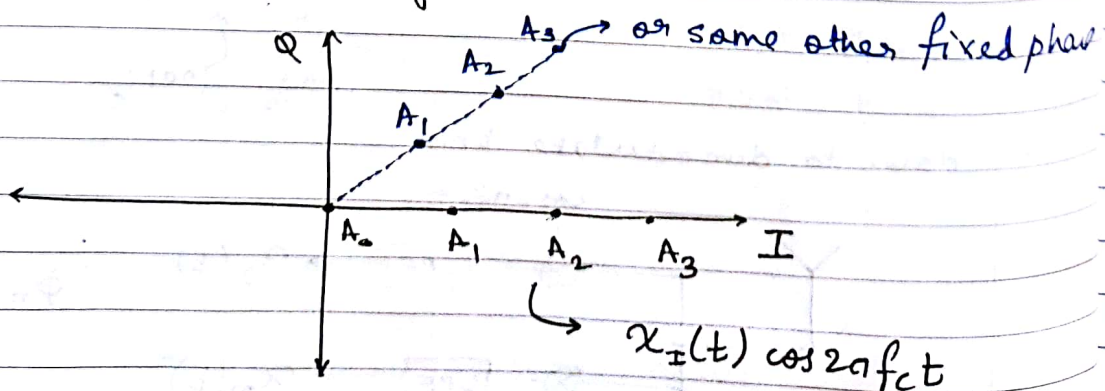 Q
A3 → or some other fixed phase
A2
A1
A0 A1 A2 A3 I
x_I(t) cos 2πf_c t